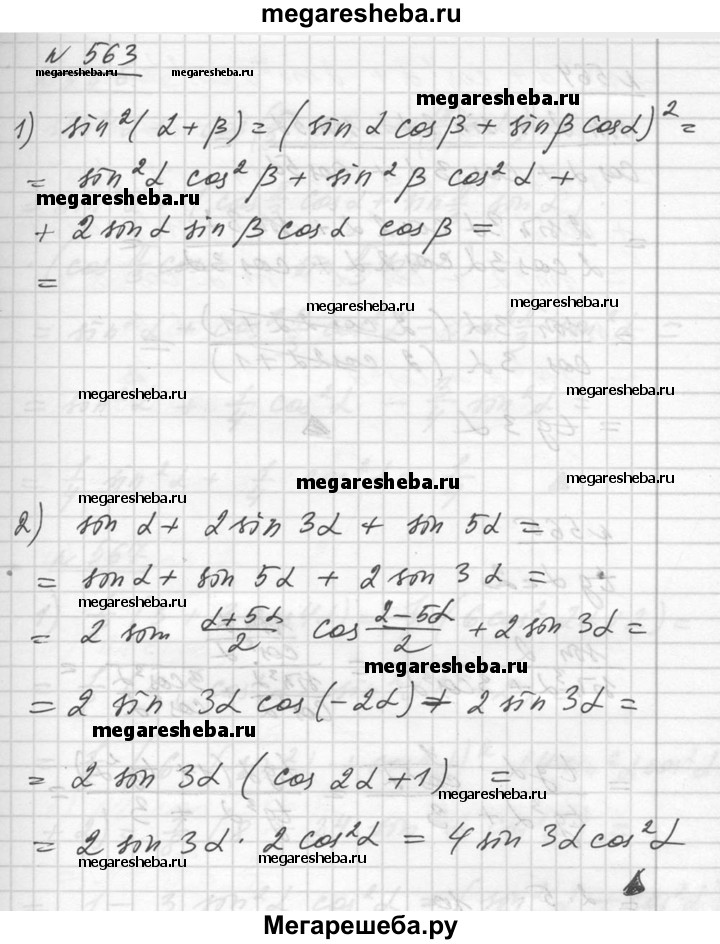 megaresheba.ru
№ 563
megaresheba.ru megaresheba.ru
megaresheba.ru
1) sin²(α+β) = (sin α cos β + sin β cos α)² =
= sin²α cos²β + sin²β cos²α +
megaresheba.ru
+ 2 sin α sin β cos α cos β =
=
megaresheba.ru megaresheba.ru
megaresheba.ru megaresheba.ru
megaresheba.ru megaresheba.ru
megaresheba.ru
2) sin α + 2 sin 3α + sin 5α =
= sin α + sin 5α + 2 sin 3α =
megaresheba.ru
= 2 sin (α+5α)/2 cos (α−5α)/2 + 2 sin 3α =
megaresheba.ru
= 2 sin 3α cos(−2α) + 2 sin 3α =
megaresheba.ru
= 2 sin 3α (cos 2α + 1) =
megaresheba.ru
= 2 sin 3α · 2 cos²α = 4 sin 3α cos²α
megaresheba.ru megaresheba.ru
Мегарешеба.ру